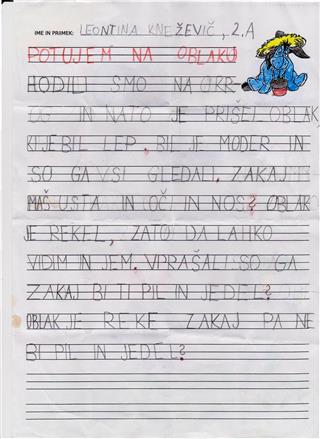 IME IN PRIIMEK: LEONTINA KNEŽEVIČ, 2.A
POTUJEM NA OBLAKU
HODILI SMO NA OKR-
OG IN NATO JE PRIŠEL OBLAK
KI JE BIL LEP. BIL JE MODER IN
SO GA VSI GLEDALI. ZAKAJ
IMAŠ USTA IN OČI IN NOS? OBLAK
JE REKEL, ZATO DA LAHKO
VIDIM IN JEM. VPRAŠALI SO GA
ZAKAJ BI TI PIL IN JEDEL?
OBLAK JE REKE ZAKAJ PA NE
BI PIL IN JEDEL?